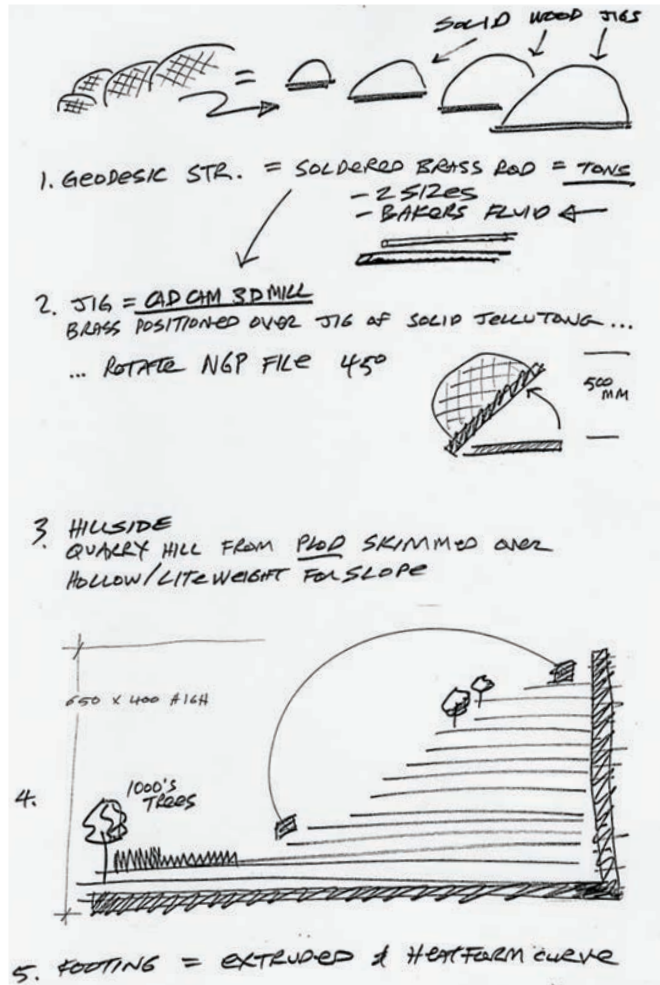 SOLID WOOD JIGS
1. GEODESIC STR. = SOLDERED BRASS ROD = TONS
- 2 SIZES
- BAKERS FLUID
2. JIG = CAD CAM 3D MILL
BRASS POSITIONED OVER JIG OF SOLID JELLUTONG ...
... ROTATE NGP FILE 45°
500 MM
3. HILLSIDE
QUARRY HILL FROM PLOD SKIMMED OVER
HOLLOW/LITEWEIGHT FOR SLOPE
650 X 400 HIGH
4.
1000'S
TREES
5. FOOTING = EXTRUDED & HEATFORM CURVE